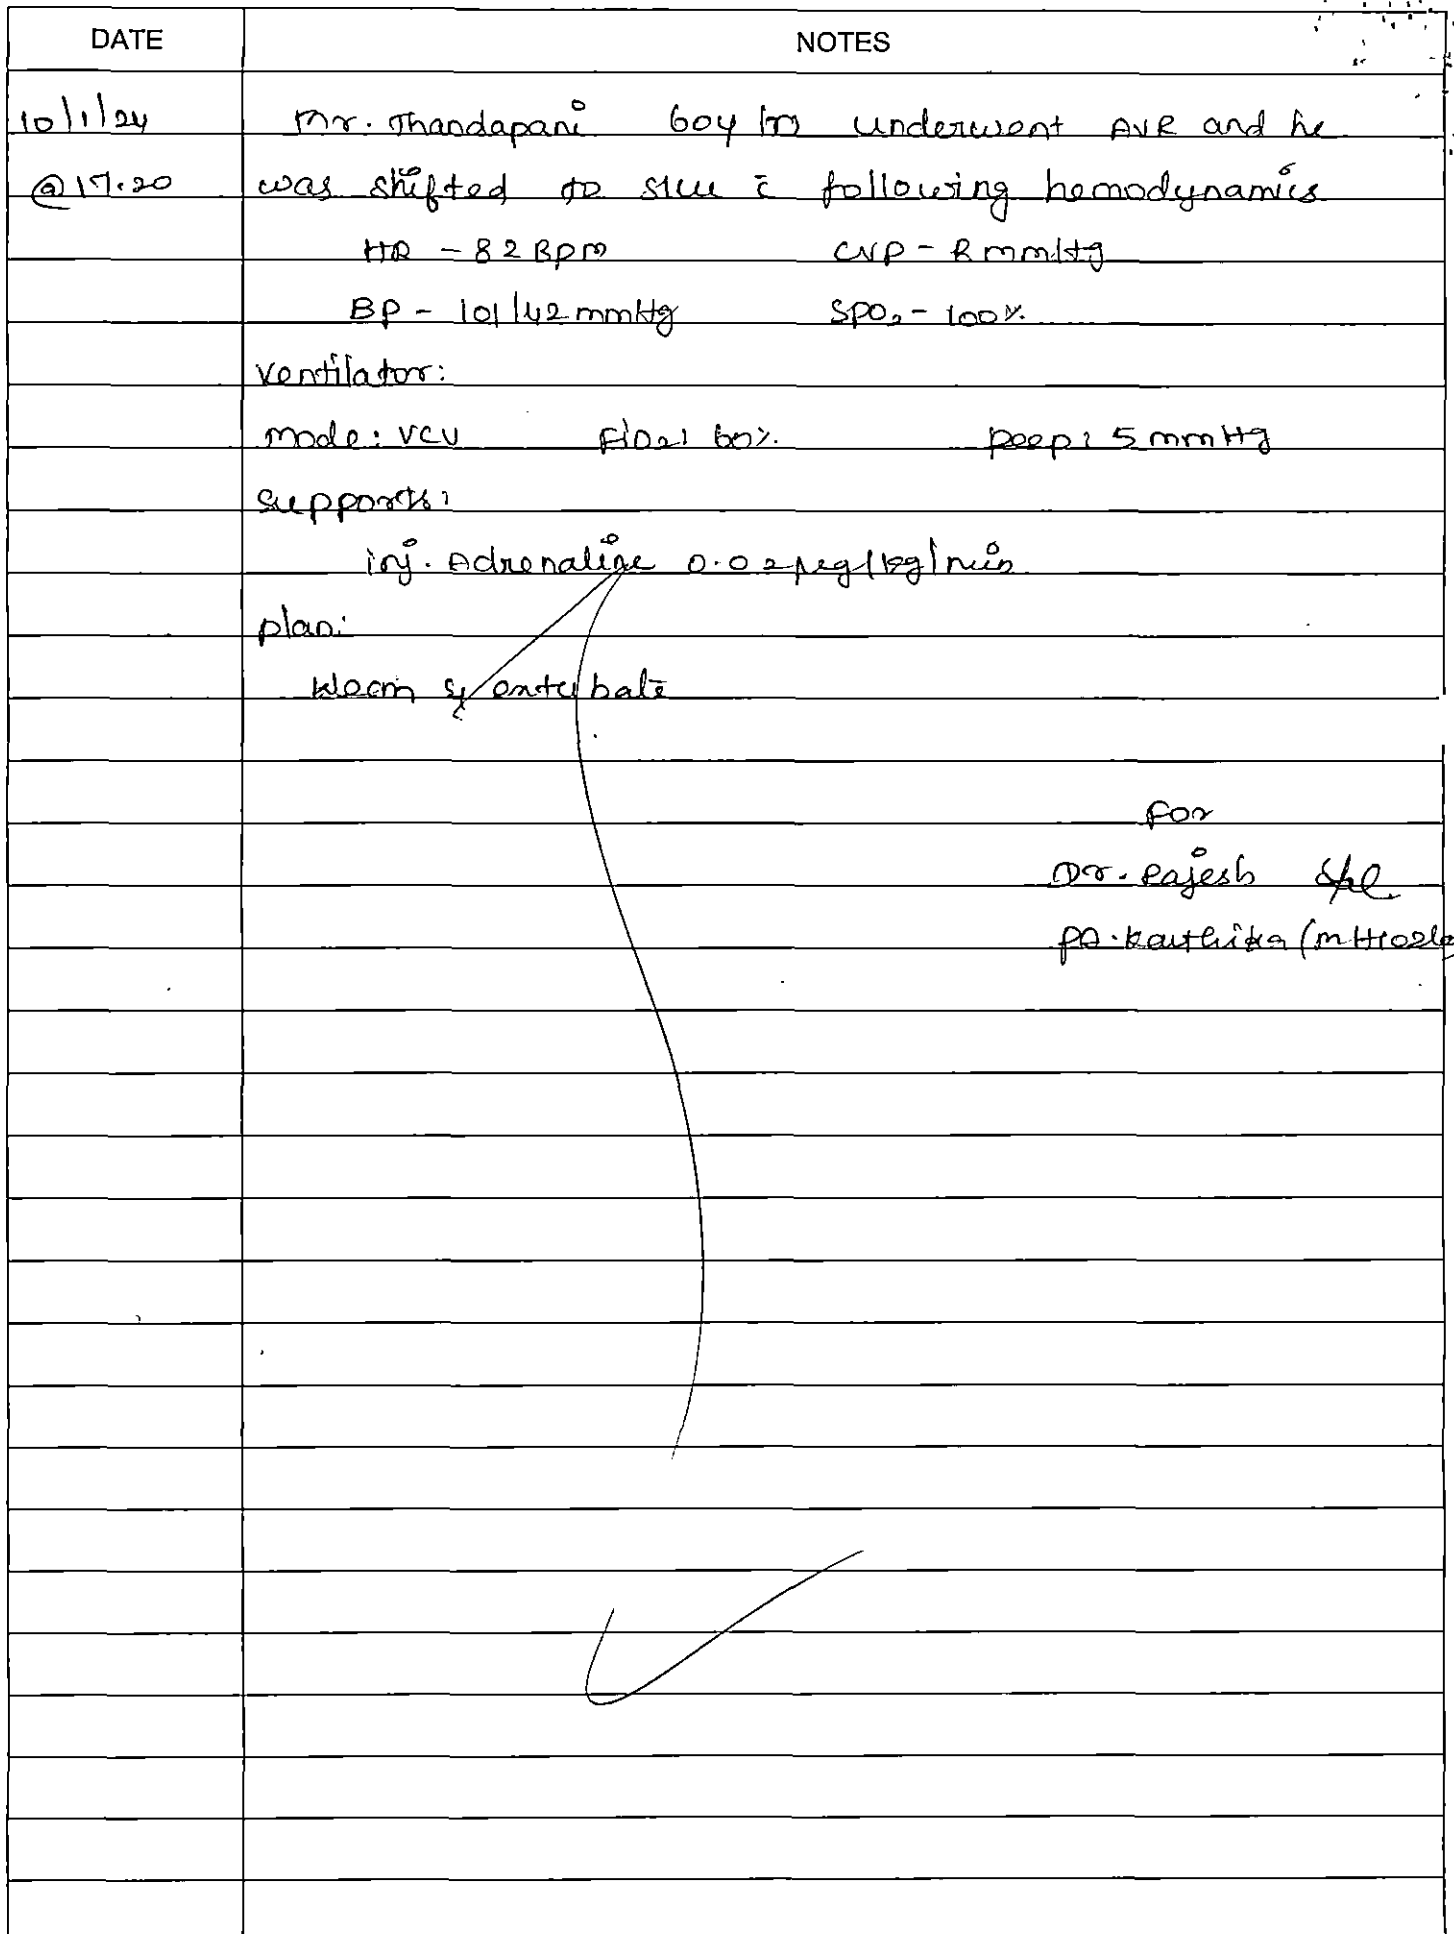 DATE NOTES
10/1/24 Mr. Thandapani 60y/m underwent AVR and he
@17.20 was shifted to SICU c̄ following hemodynamics
HR - 82 BPM CVP - 8 mmHg
BP - 101/42 mmHg SPO₂ - 100%
Ventilator:
mode: VCV FiO₂: 60% peep: 5 mmHg
supports:
inj. Adrenaline 0.02 µcg/kg/min
plan:
Wean & extubate
For
Dr. Rajesh
PA. Karthika